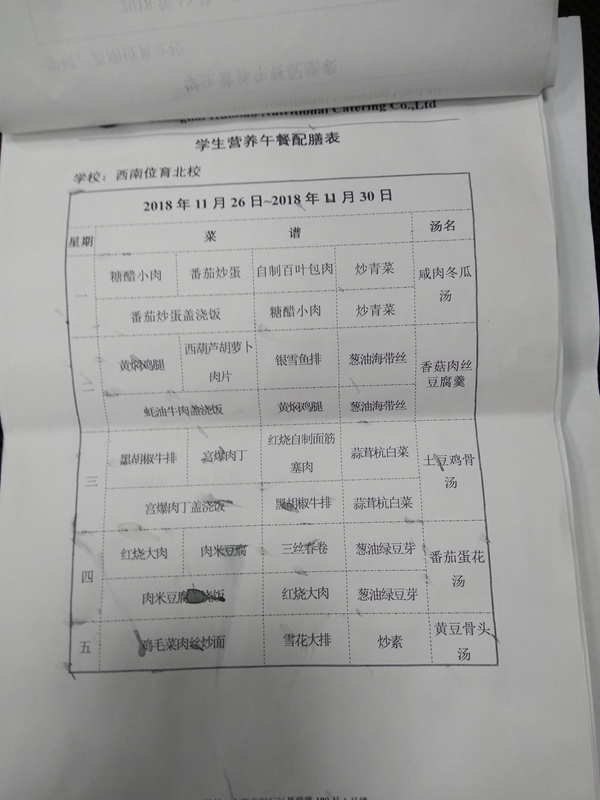 Nutritional Catering Co.,Ltd
学生营养午餐配膳表
学校：西南位育北校
2018年11月26日~2018年11月30日
星期 菜 谱 汤名
一 糖醋小肉 番茄炒蛋 自制百叶包肉 炒青菜 咸肉冬瓜汤
番茄炒蛋盖浇饭 糖醋小肉 炒青菜
二 黄焖鸡腿 西葫芦胡萝卜肉片 银雪鱼排 葱油海带丝 香菇肉丝豆腐羹
蚝油牛肉盖浇饭 黄焖鸡腿 葱油海带丝
三 黑胡椒牛排 宫爆肉丁 红烧自制面筋塞肉 蒜茸杭白菜 土豆鸡骨汤
宫爆肉丁盖浇饭 黑胡椒牛排 蒜茸杭白菜
四 红烧大肉 肉米豆腐 三丝春卷 葱油绿豆芽 番茄蛋花汤
肉米豆腐浇饭 红烧大肉 葱油绿豆芽
五 鸡毛菜肉丝炒面 雪花大排 炒素 黄豆骨头汤